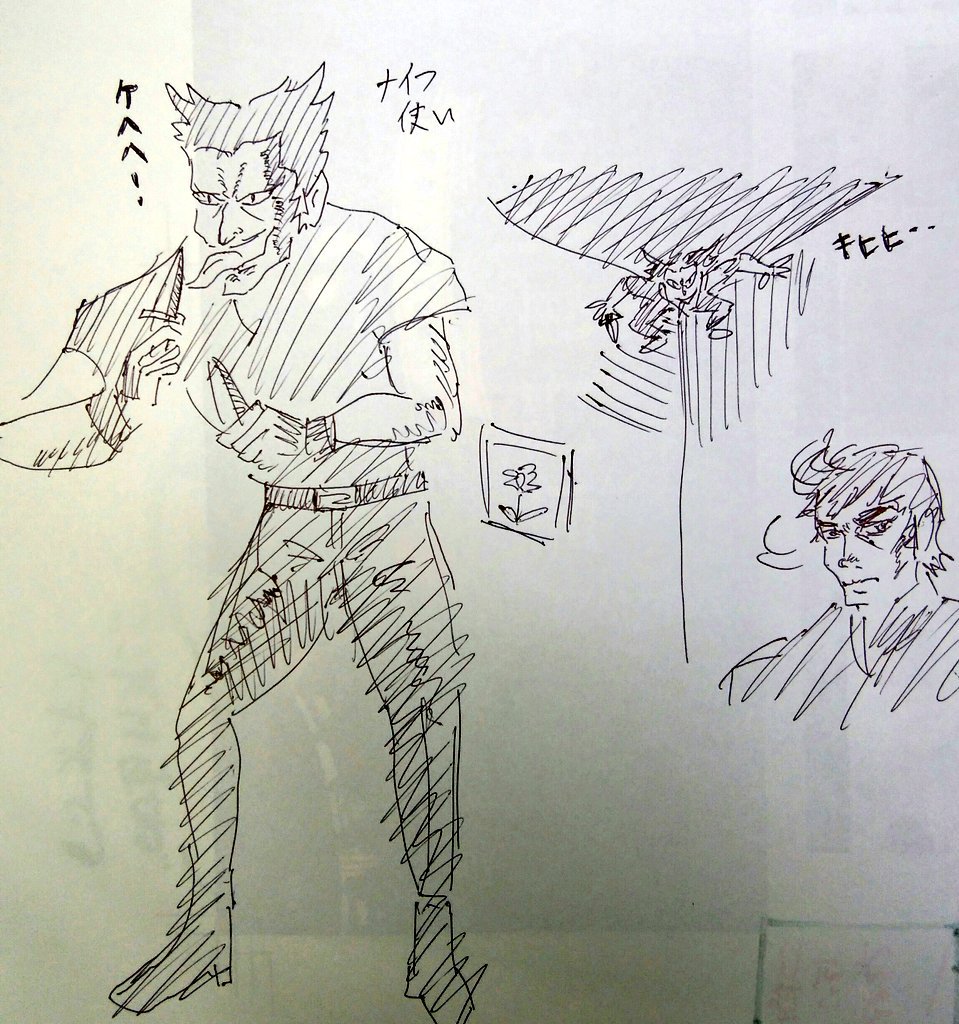 ケヘヘ!
ナイフ
使い
キヒヒ‥